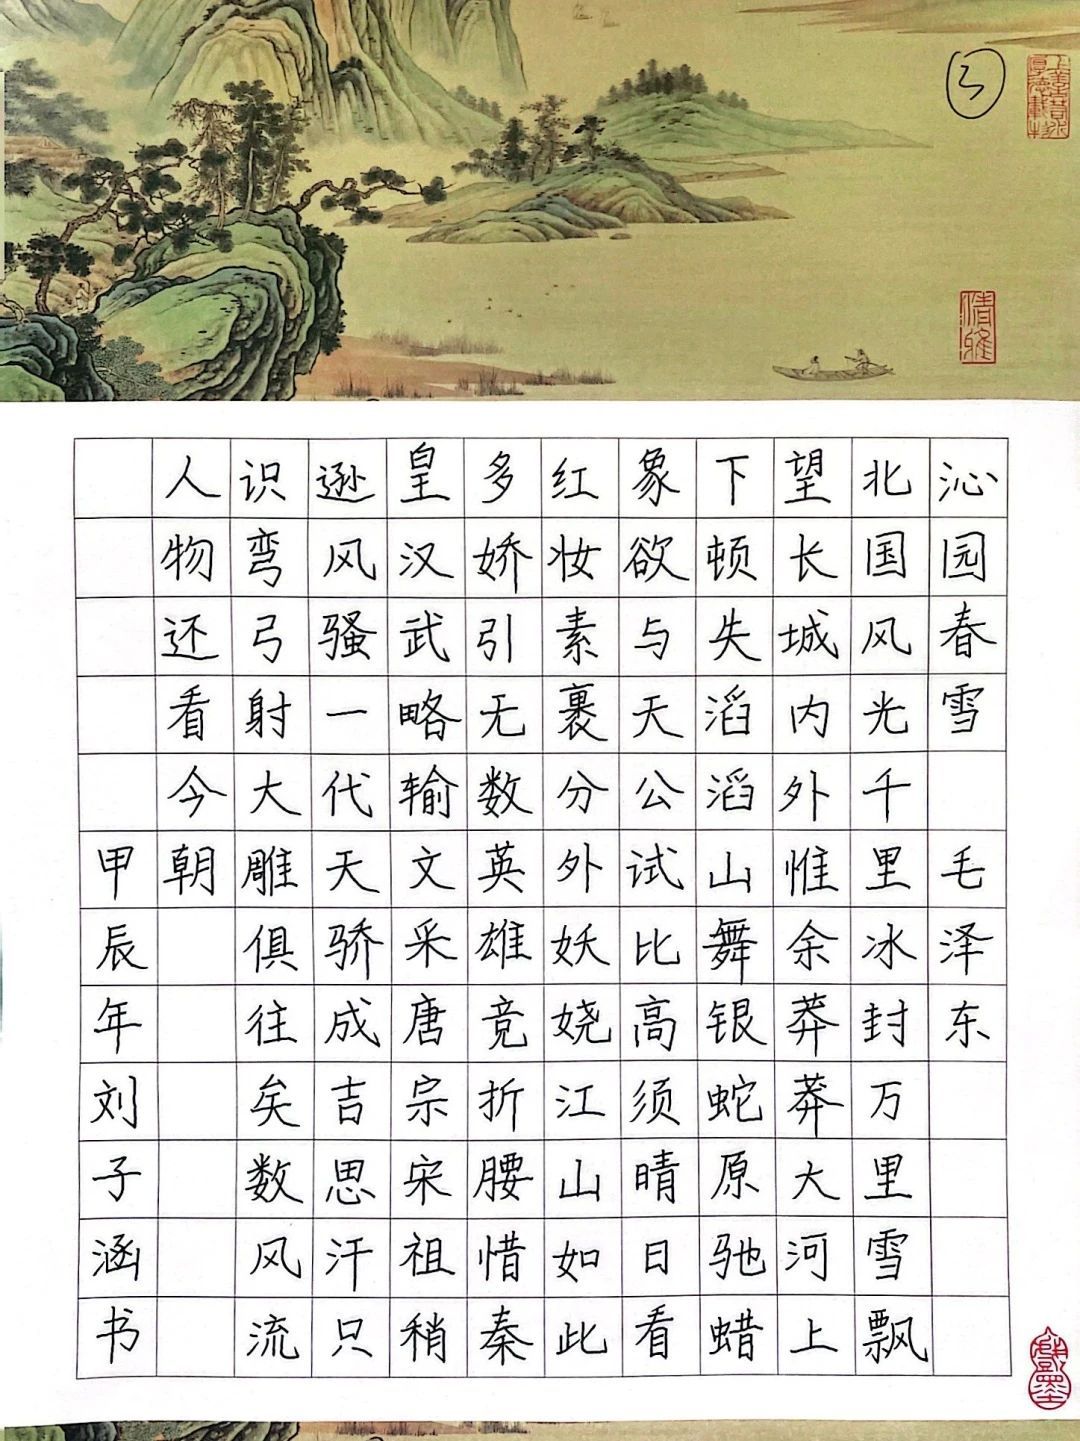 3
上善若水
厚德载物
清雅
沁园春雪 毛泽东
北国风光千里冰封万里雪飘
望长城内外惟余莽莽大河上
下顿失滔滔山舞银蛇原驰蜡
象欲与天公试比高须晴日看
红妆素裹分外妖娆江山如此
多娇引无数英雄竞折腰惜秦
皇汉武略输文采唐宗宋祖稍
逊风骚一代天骄成吉思汗只
识弯弓射大雕俱往矣数风流
人物还看今朝
甲辰年刘子涵书